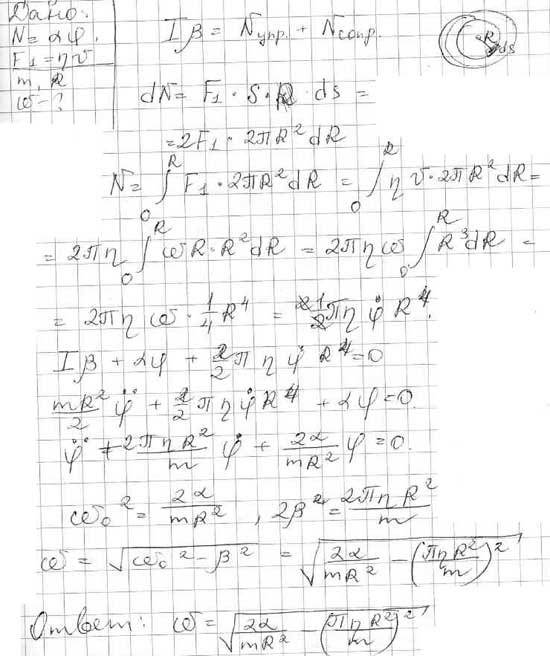 Дано:
N = αφ.
F₁ = ηv
m, R
ω - ?
Iβ = Nупр. + Nсопр.
R
ds
dN = F₁ · S · R · ds =
= 2F₁ · 2πR² dR
N = ∫₀ᴿ F₁ · 2πR² dR = ∫₀ᴿ η v · 2πR² dR =
= 2πη ∫₀ᴿ ωR · R² dR = 2πηω ∫₀ᴿ R³ dR =
= 2πηω · 1/4 R⁴ = 1/2 πη φ̇ R⁴.
Iβ + αφ + 2/2 πη φ̇ R⁴ = 0
mR²/2 φ̈ + 2/2 πη φ̇ R⁴ + αφ = 0.
φ̈ + 2πηR²/m φ̇ + 2α/mR² φ = 0.
ω₀² = 2α/mR² , 2β² = 2πηR²/m
ω = √(ω₀² - β²) = √(2α/mR² - (πηR²/m)²)
Ответ: ω = √(2α/mR² - (πηR²/m)²)